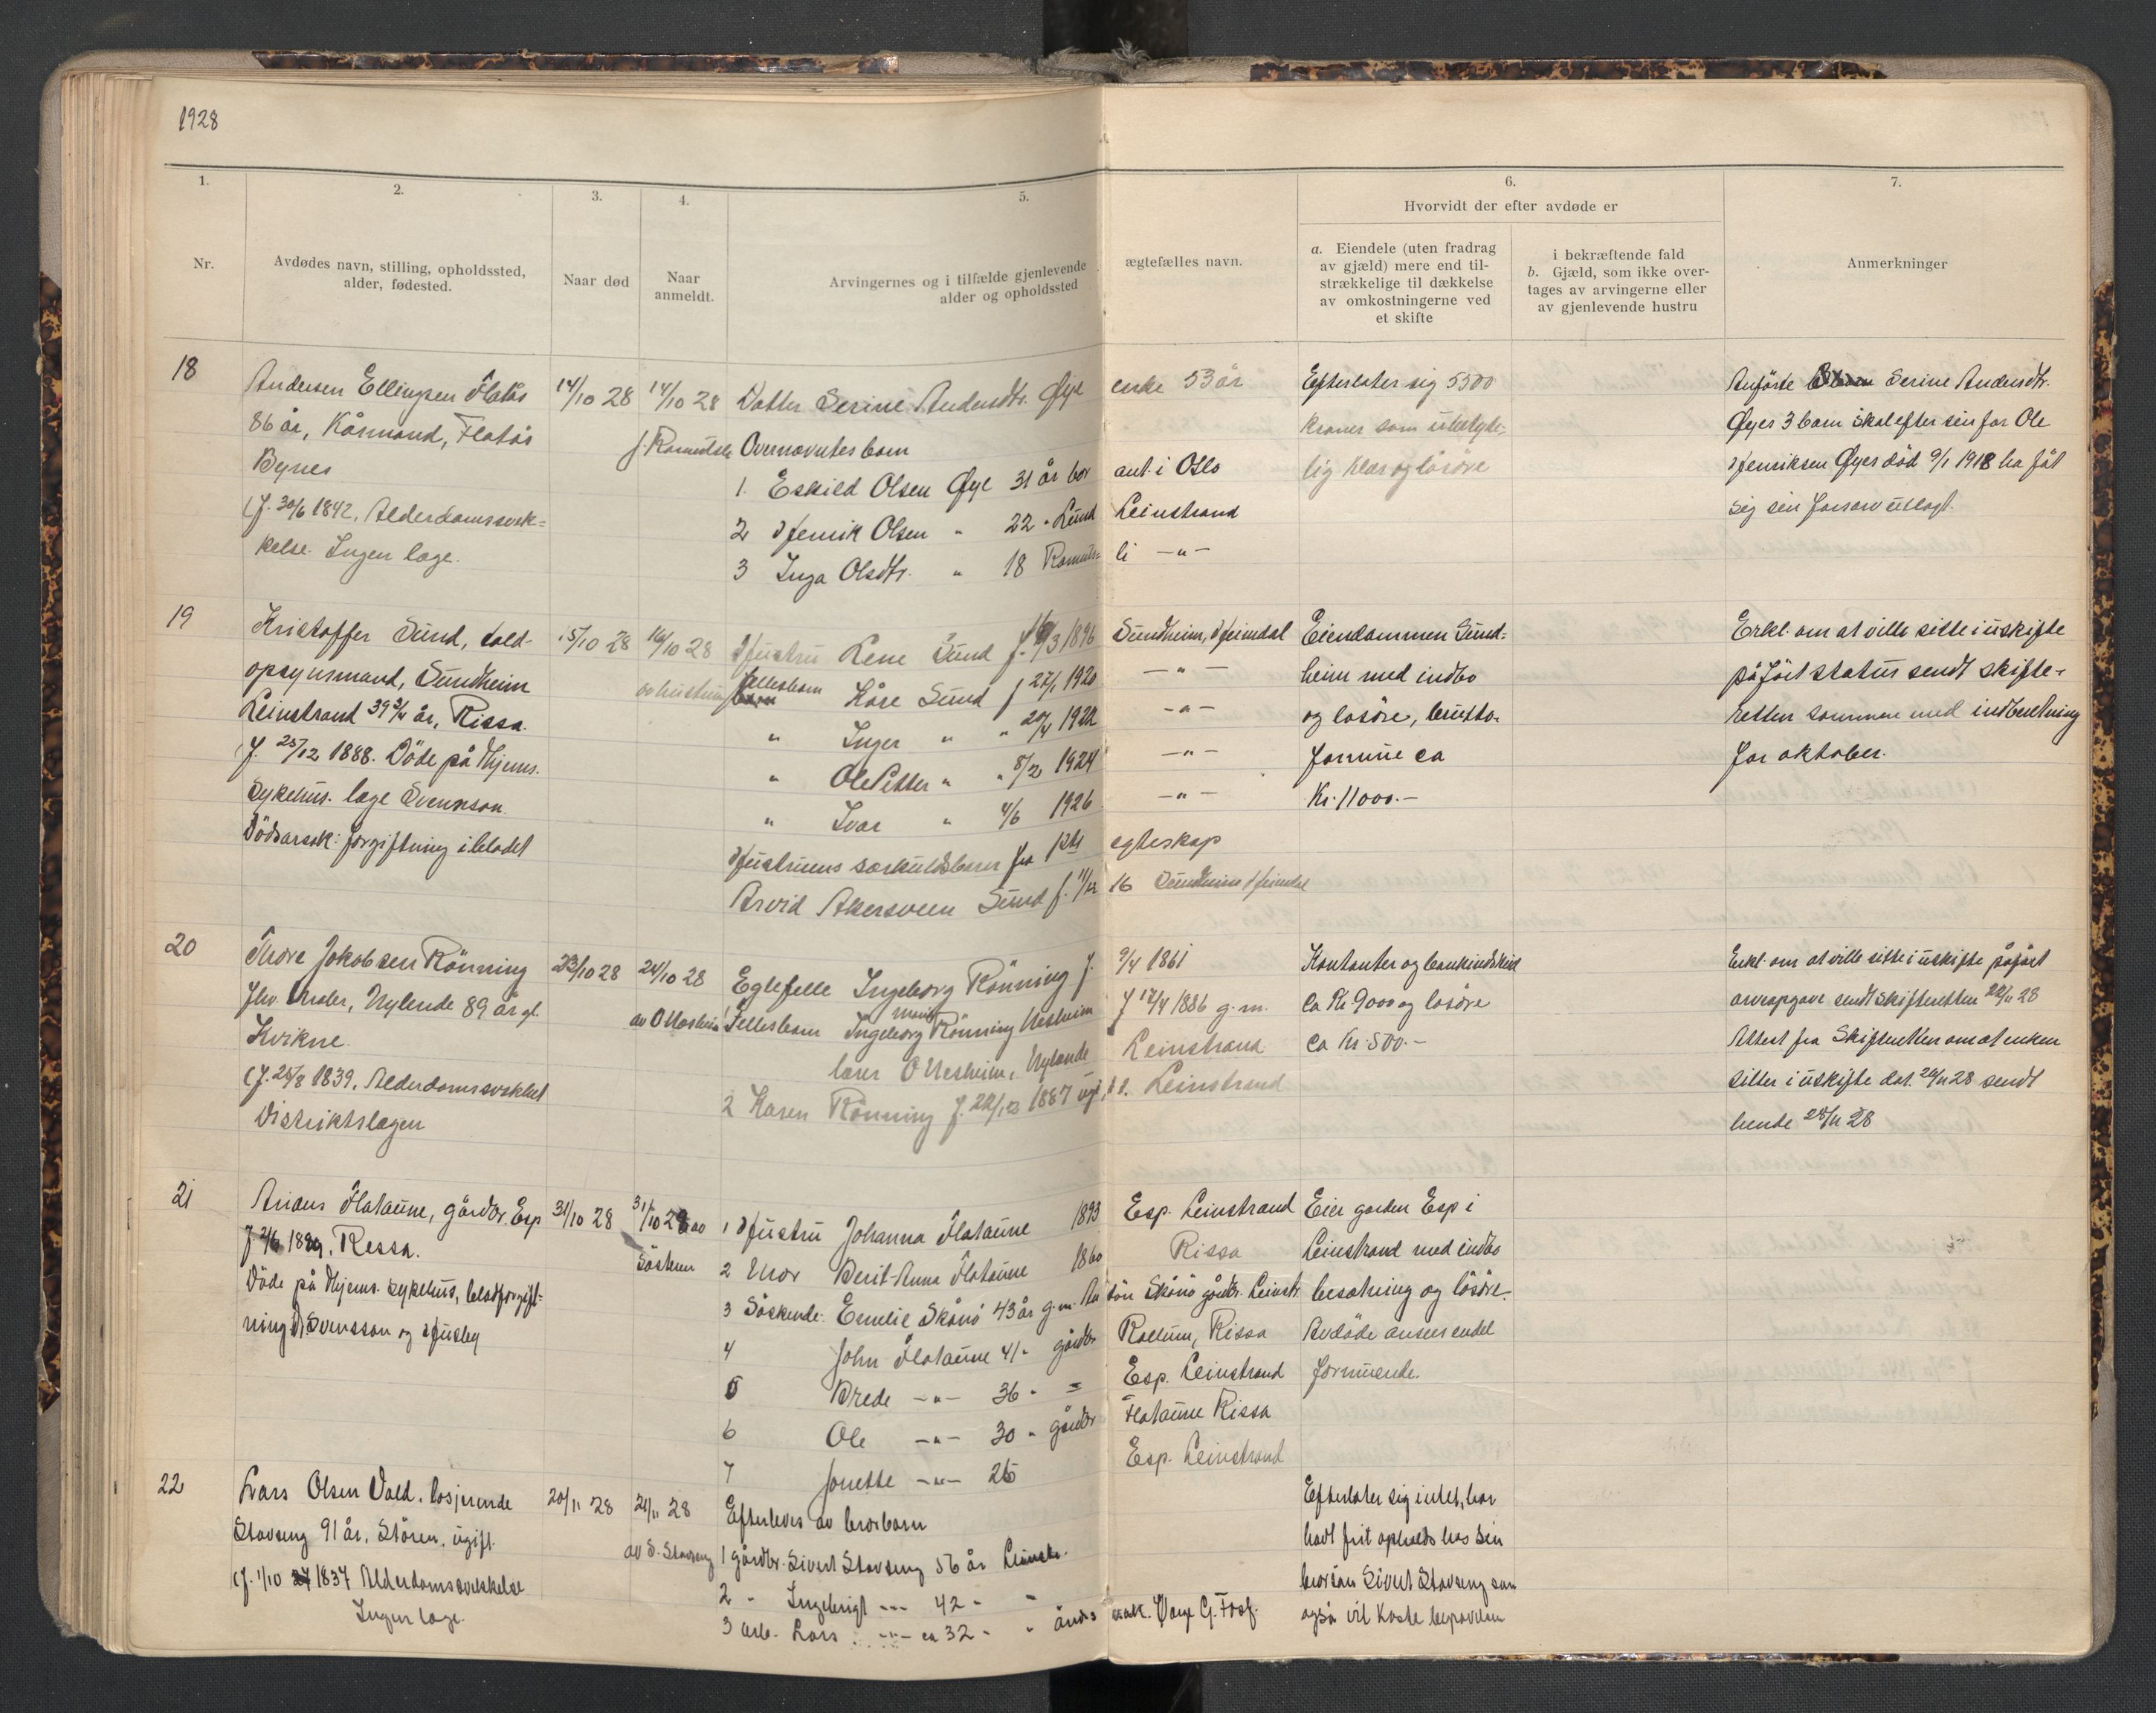 1928
1.
2.
3.
4.
5.
6.
7.
Nr.
Avdødes navn, stilling, opholdssted,
alder, fødested.
Naar død
Naar
anmeldt.
Arvingernes og i tilfælde gjenlevende ægtefælles navn.
alder og opholdssted
Hvorvidt der efter avdøde er
a. Eiendele (uten fradrag
av gjæld) mere end til-
strækkelige til dækkelse
av omkostningerne ved
et skifte
i bekræftende fald
b. Gjæld, som ikke over-
tages av arvingerne eller
av gjenlevende hustru
Anmerkninger
18
Andersen Ellingsen Flatås
86 år, Kårmand, Flatås
Bynes
(f. 30/6 1842. Alderdomssvek-
kelse. Ingen læge.
14/10 28
14/10 28
Datter Serine Andersdtr. Øye enke 53 år
Overnævntes barn
1. Eskild Olsen Øye 31 år bor ant. i Oslo
2 Henrik Olsen " 22 " Lund Leinstrand
3 Inga Olsdtr. " 18 Romuls- li —"—
Efterlater sig 5500
Kroner som
lig klær og lösöre
Anförte Serine Andersdtr.
Øyes 3 barn skal efter sin far Ole
Henriksen Øyes död 9/1 1918 ha fåt
sig sin farsarv utlagt.
19
Kristoffer Sund, told-
opsynsmand, Sundheim
Leinstrand 39 3/4 år, Rissa.
(f. 25/12 1888. Döde på Hjems.
Sykehus. læge Svensson.
Dödsarsak: forgiftning i blodet
15/10 28
16/10 28
av hustruen
Hustru Lene Sund f. /3 1896 Sundheim, Heimdal
Fellesbarn Kåre Sund f 27/1 1920 —"—
" Inger " " 20/4 1922 —"—
" Ole Petter " " 8/2 1924 —"—
" Ivar " 4/6 1926 —"—
Hustruens særkuldsbarn fra 1ste egteskap
Arvid Akersveen Sund f. 11/12 16 Sundheim Heimdal
Eiendommen Sund-
heim med indbo
og lösöre, brutto-
formue ca
Kr. 11000.-
Erkl. om at ville sitte i uskifte
påfört status sendt skifte-
retten sammen med indberetning
for oktober.
20
Thore Jakobsen Rönning
fhv. Nylende 89 år gl.
Kvikne.
(f. 25/8 1839. Alderdomssvekket
Distriktslægen
23/10 28
24/10 28
av O Nesheim
Egtefelle Ingeborg Rönning f. 9/4 1861
1 Fellesbarn Ingeborg Rönning Nesheim f 12/4 1886 g. m.
lærer O Nesheim, Nylende Leinstrand
2 Karen Rönning f. 22/12 1887 ugift, Leinstrand
Kontanter og bankindskud
ca Kr. 9000 og lösöre
ca Kr. 500.-
Erkl. om at ville sitte i uskifte påfört
arveopgave sendt skifteretten 22/11 28
Attest fra Skifteretten om at enken
sitter i uskifte dat. 24/11 28 sendt
hende 28/11 28
21
Anders Flataune, gårdbr. Esp
f. 2/6 1889, Rissa.
Döde på Hjems. sykehus, blodforgift-
ning Dr Svensson og Husby
31/10 28
31/10 28 av
Söskenn
1 Hustru Johanna Flataune 1893 Esp. Leinstrand
2 Mor Berit-Anna Flataune 1860 Rissa
3 Söskende: Emelie Skånö 43 år g.m. Anton Skånö gårdbr. Leinstr.
4 John Flataune 41 " gårdbr Rissa
5 Brede —"— 36 " = Esp. Leinstrand
6 Ole —"— 30 " gårdbr Flataune Rissa
7 Jonette —"— 25 Esp. Leinstrand
Eier gården Esp i
Leinstrand med indbo
besætning og lösöre.
Avdöde ansees endel
formuende.
22
Lars Olsen Vold. losjerende
Stavseng 91 år. Stören, ugift.
(f. 1/10 1837 Alderdomssvekkelse
Ingen læge.
20/11 28
21/11 28
av S. Stavseng
Efterleves av brorbarn
1 gårdbr. Sivert Stavseng 56 år Leinstr.
2 " Ingebrigt —"— 42 " "
3 arb. Lars —"— ca 32 " "
Efterlater sig intet, har
havt frit opholds hos sin
brorsön Sivert Stavseng som
også vil koste begravelsen